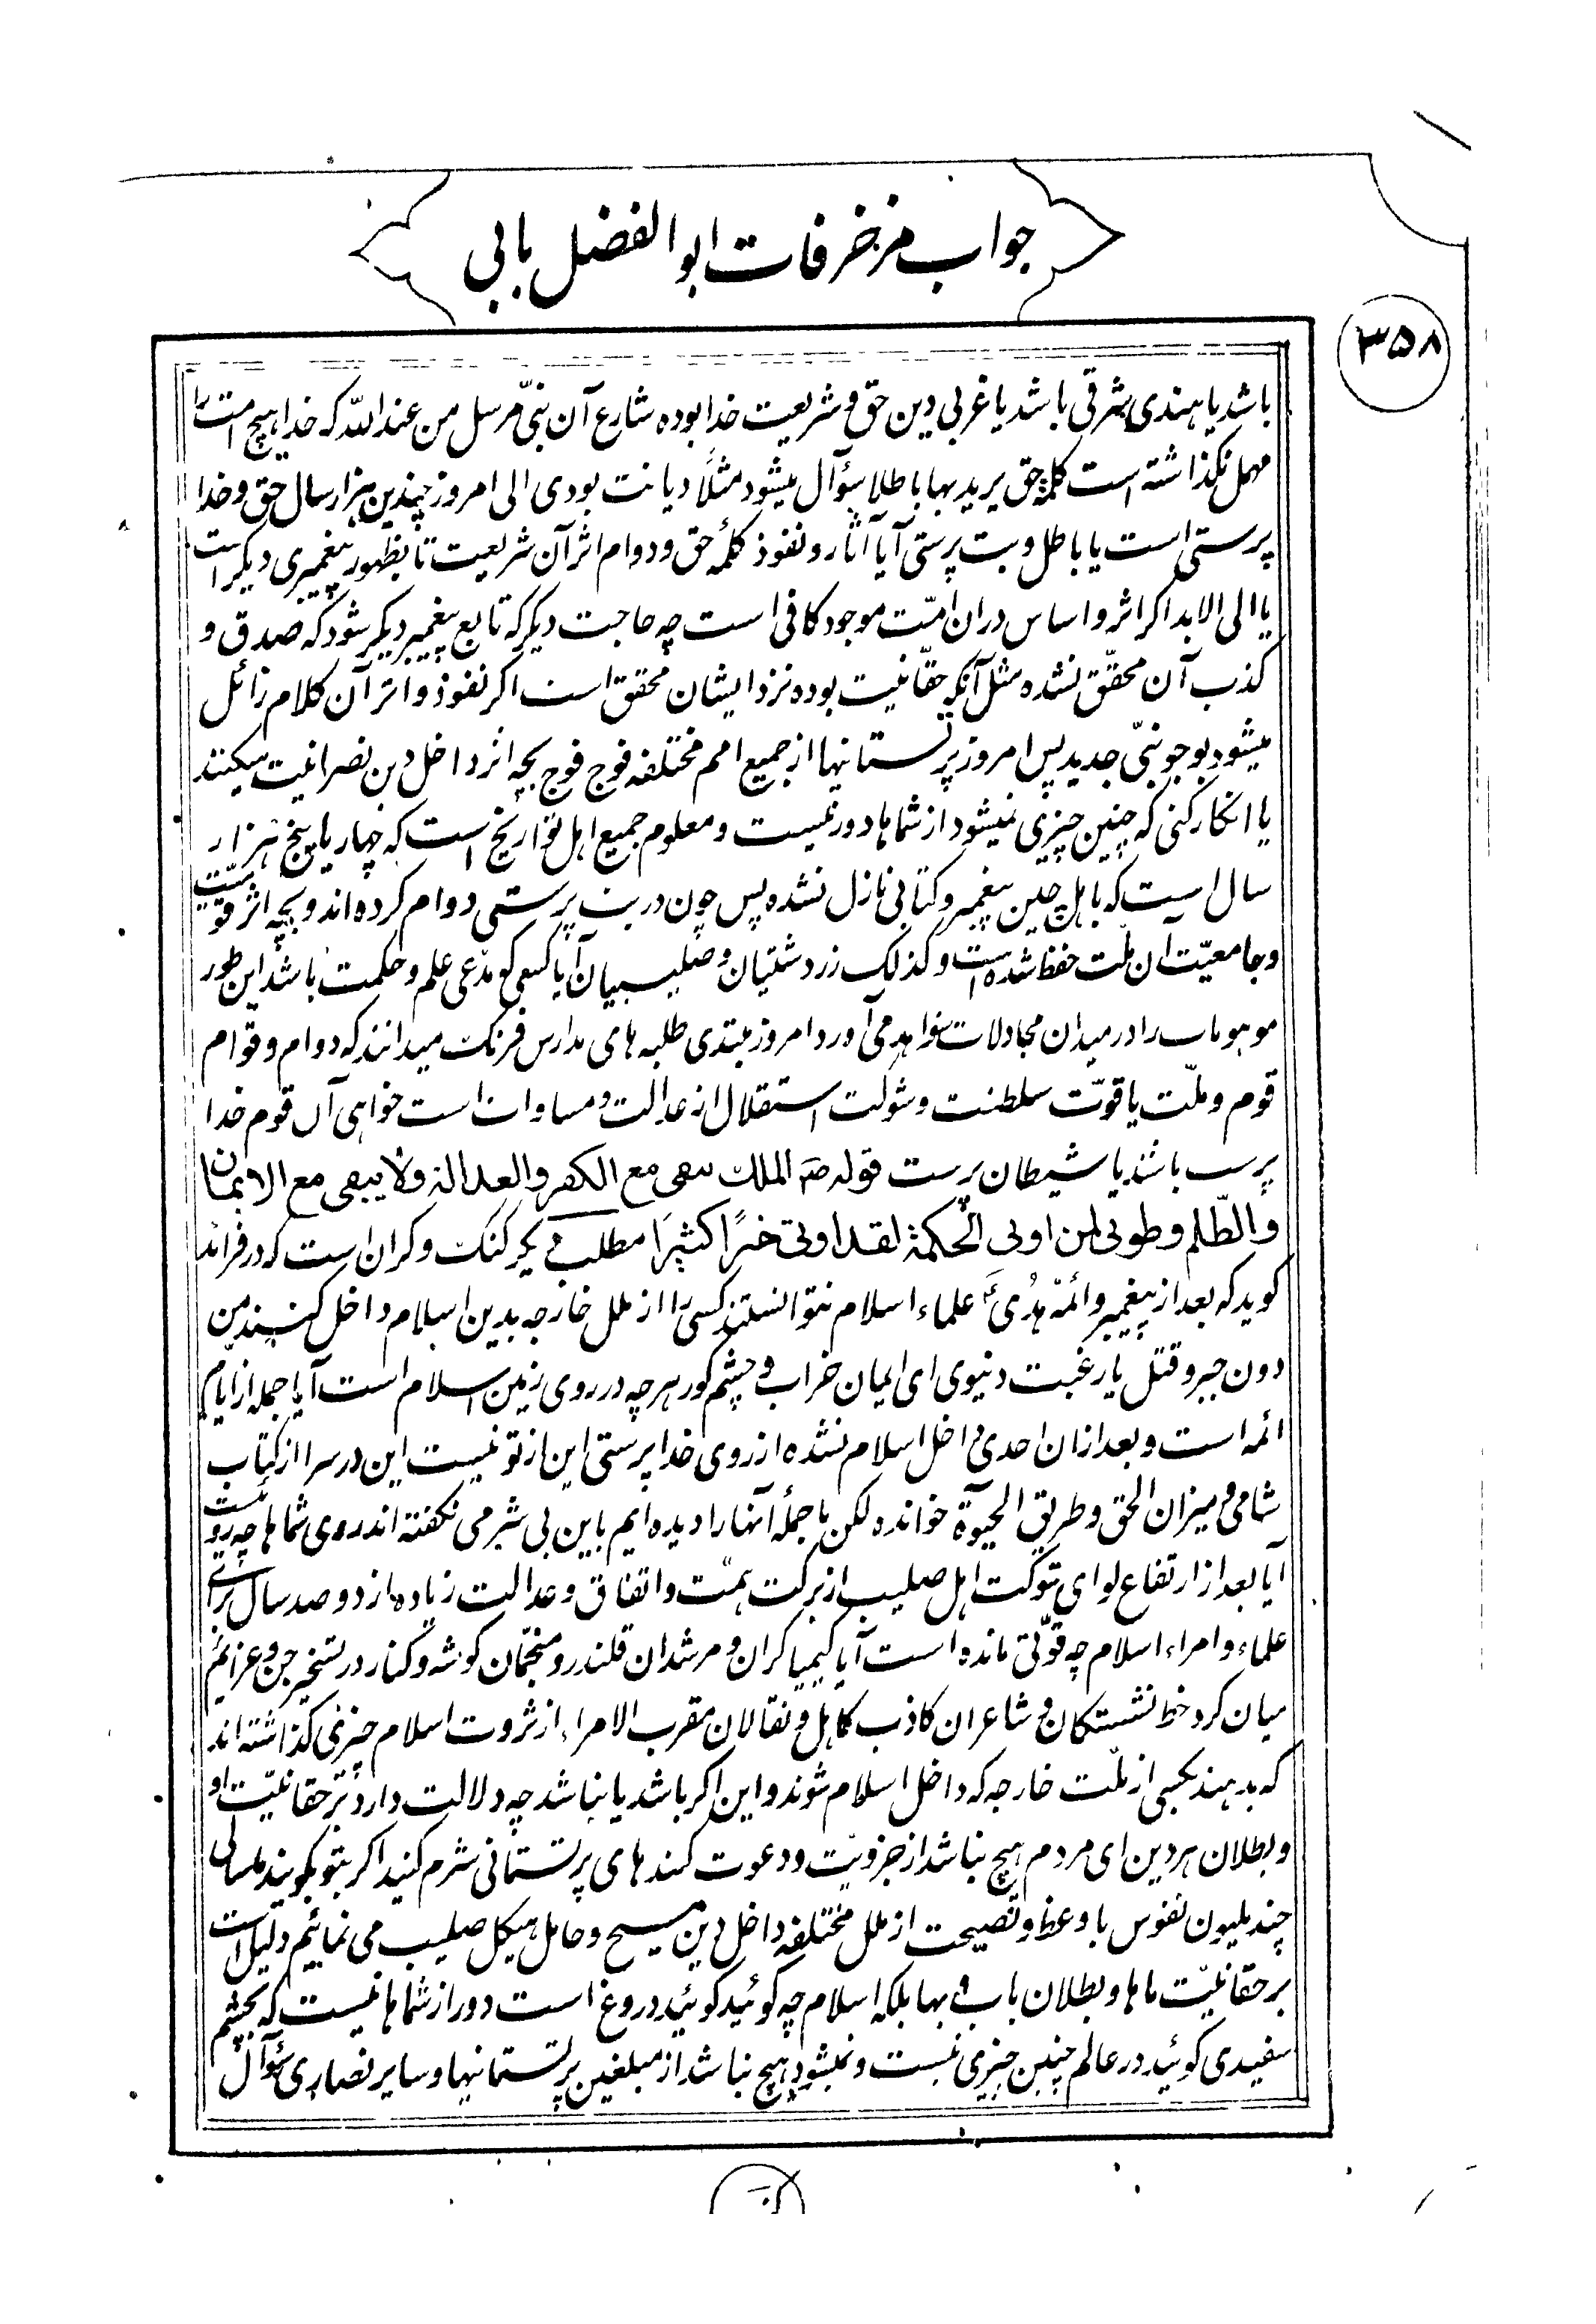 جواب مزخرفات ابوالفضل بابی
۳۵۸
باشد یا هندی شرقی باشد یا غربی دین حق و شریعت خدا بوده شارع آن نبیّ مرسل من عندالله که خدا هیچ امت را
مهمل نکذاشته است کلمهٔ حق یرید بها باطلا سؤآل میشود مثلاً دیانت بودی الی امروز چندین هزار سال حق و خدا
پرستی است یا باطل و بت پرستی آیا آثار و نفوذ کلمهٔ حق و دوام اثر آن شریعت تا بظهور پیغمبری دیکر است
یا الی الابد اکر اثر و اساس دران امّت موجود کافی است چه حاجت دیکر که تابع پیغمبر دیکر شود که صدق و
کذب آن محقّق نشده مثل آنکه حقّانیت بوده نزد ایشان محقق است اکر نفوذ و اثر آن کلام زائل
میشود بوجو نبیّ جدید پس امروز پرتستانیها از جمیع امم مختلفه فوج فوج بچه اثر داخل دین نصرانیت میکنند
یا انکار کنی که چنین چیزی نمیشود از شماها دور نیست و معلوم جمیع اهل تواریخ است که چهار یا پنج هزار
سال است که باهل چین پیغمبر و کتابی نازل نشده پس چون در بت پرستی دوام کرده‌اند و بچه اثر قومیّت
و جامعیّت آن ملّت حفظ شده است و کذلک زردشتیان و صلیبیان آیا کسی کو مدّعی علم و حکمت باشد این طور
موهومات را در میدان مجادلات خواهد می‌آورد امروز مبتدی طلبه های مدارس فرنک میدانند که دوام و قوام
قوم و ملّت یا قوّت سلطنت و شوکت استقلال از عدالت و مساوات است خواهی آن قوم خدا
پرست باشد یا شیطان پرست قوله ص الملک یبقی مع الکفر والعدالة ولا یبقی مع الایمان
والظّلم و طوبی لمن اوتی الحکمة لقد اوتی خیرًا کثیرًا مطلب دیکر کنک و کران است که در فرائد
کوید که بعد از پیغمبر و ائمّهٔ هدیٰ ع علماء اسلام نتوانستند کسی را از ملل خارجه بدین اسلام داخل کنند من
دون جبر و قتل یا رغبت دنیوی ای ایمان خراب و چشم کور هرچه در روی زمین اسلام است آیا جمله از ایّام
ائمه است و بعد ازان احدی داخل اسلام نشده از روی خدا پرستی این از تو نیست این درس را از کتاب
شامی و میزان الحق و طریق الحیوة خوانده لکن ما جملهٔ آنها را دیده‌ایم باین بی شرمی نکفته‌اند روی شماها چه رویست
آیا بعد از ارتفاع لوای شوکت اهل صلیب از برکت همّت و اتفاق و عدالت زیاده از دو صد سال برای
علماء و امراء اسلام چه قوّتی مانده است آیا کیمیا کران و مرشدان قلندر و منجّمان کوشه و کنار در تسخیر جن و عزائم
میان کرد خط نشستکان و شاعران کاذب کاهل و نقالان مقرب الامراء از ثروت اسلام چیزی کذاشته‌اند
که بدهند بکسی از ملّت خارجه که داخل اسلام شوند و این اکر باشد یا نباشد چه دلالت دارد بر حقانیّت او
و بطلان هر دین ای مردم هیچ نباشد از جزویت و دعوت کنندهای پرتستانی شرم کنید اکر بتو بکویند ما سالی
چند ملیون نفوس با وعظ و نصیحت از ملل مختلفه داخل دین مسیح و حامل هیکل صلیب می نمائیم دلیل است
بر حقانیّت ماها و بطلان باب و بها بلکه اسلام چه کوئید کوئید دروغ است دور از شماها نیست که بچشم
سفیدی کوئید در عالم چنین چیزی نیست و نمیشود هیچ نباشد از مبلغین پرتستانیها و سایر نصاری سؤآل